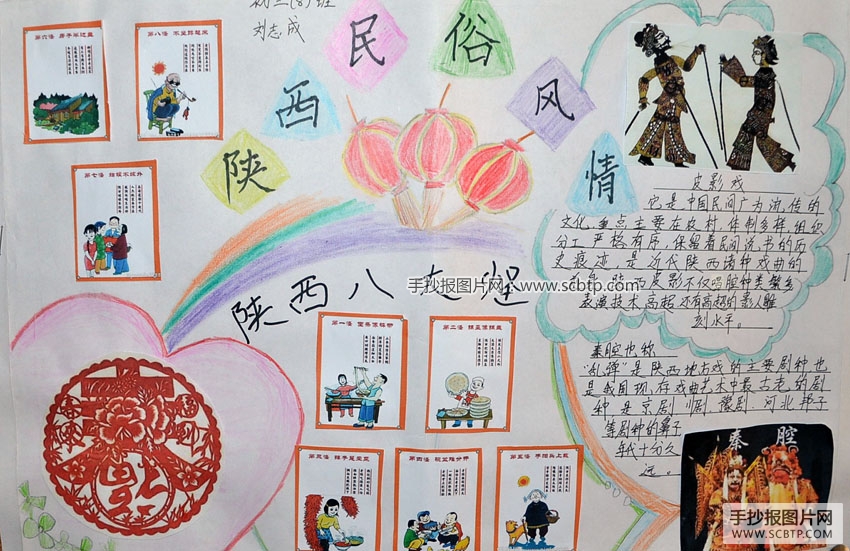 初三(8)班
刘志成
陕西民俗风情
陕西八大怪
第六怪 房子半边盖
第八怪 不坐蹲起来
第一怪 面条像裤带
第二怪 锅盔像锅盖
第三怪 辣子是道菜
第四怪 碗盆难分开
第五怪 手帕头上戴
皮影戏
它是中国民间广为流传的
文化,重点主要在农村,体制多样,组织
分工严格有序,保留着民间说书的历
史痕迹,是近代陕西诸种戏曲的
陕西皮影不仅唱腔种类繁多
表演技术高超还有高超的
刻水平。
秦腔也称
"乱弹"是陕西地方戏的主要剧种也
是我国现存戏曲艺术中最古老的剧
种是京剧 川剧、豫剧、河北梆子
等剧种的鼻子
年代十分久
远。
秦腔
手抄报图片网:www.scbtp.com
手抄报图片网
WWW.SCBTP.COM